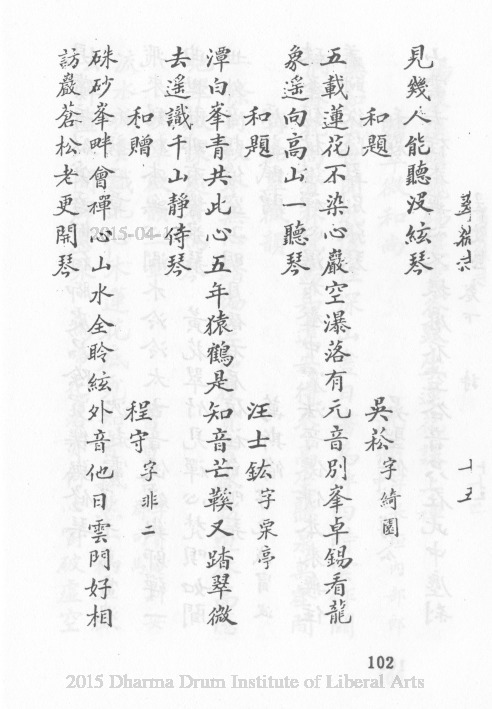 十五
見幾人能聽沒絃琴
和題 吳菘字綺園
五載蓮花不染心巖空瀑落有元音別峯卓錫看龍
象遥向高山一聽琴
和題 汪士鈜字栗亭
潭白峯青共此心五年猿鶴是知音芒鞵又踏翠微
去遥識千山靜侍琴
和贈 程守字非二
硃砂峯畔會禪心山水全聆絃外音他日雲門好相
訪巖蒼松老更開琴
102
2015-04-1
2015 Dharma Drum Institute of Liberal Arts